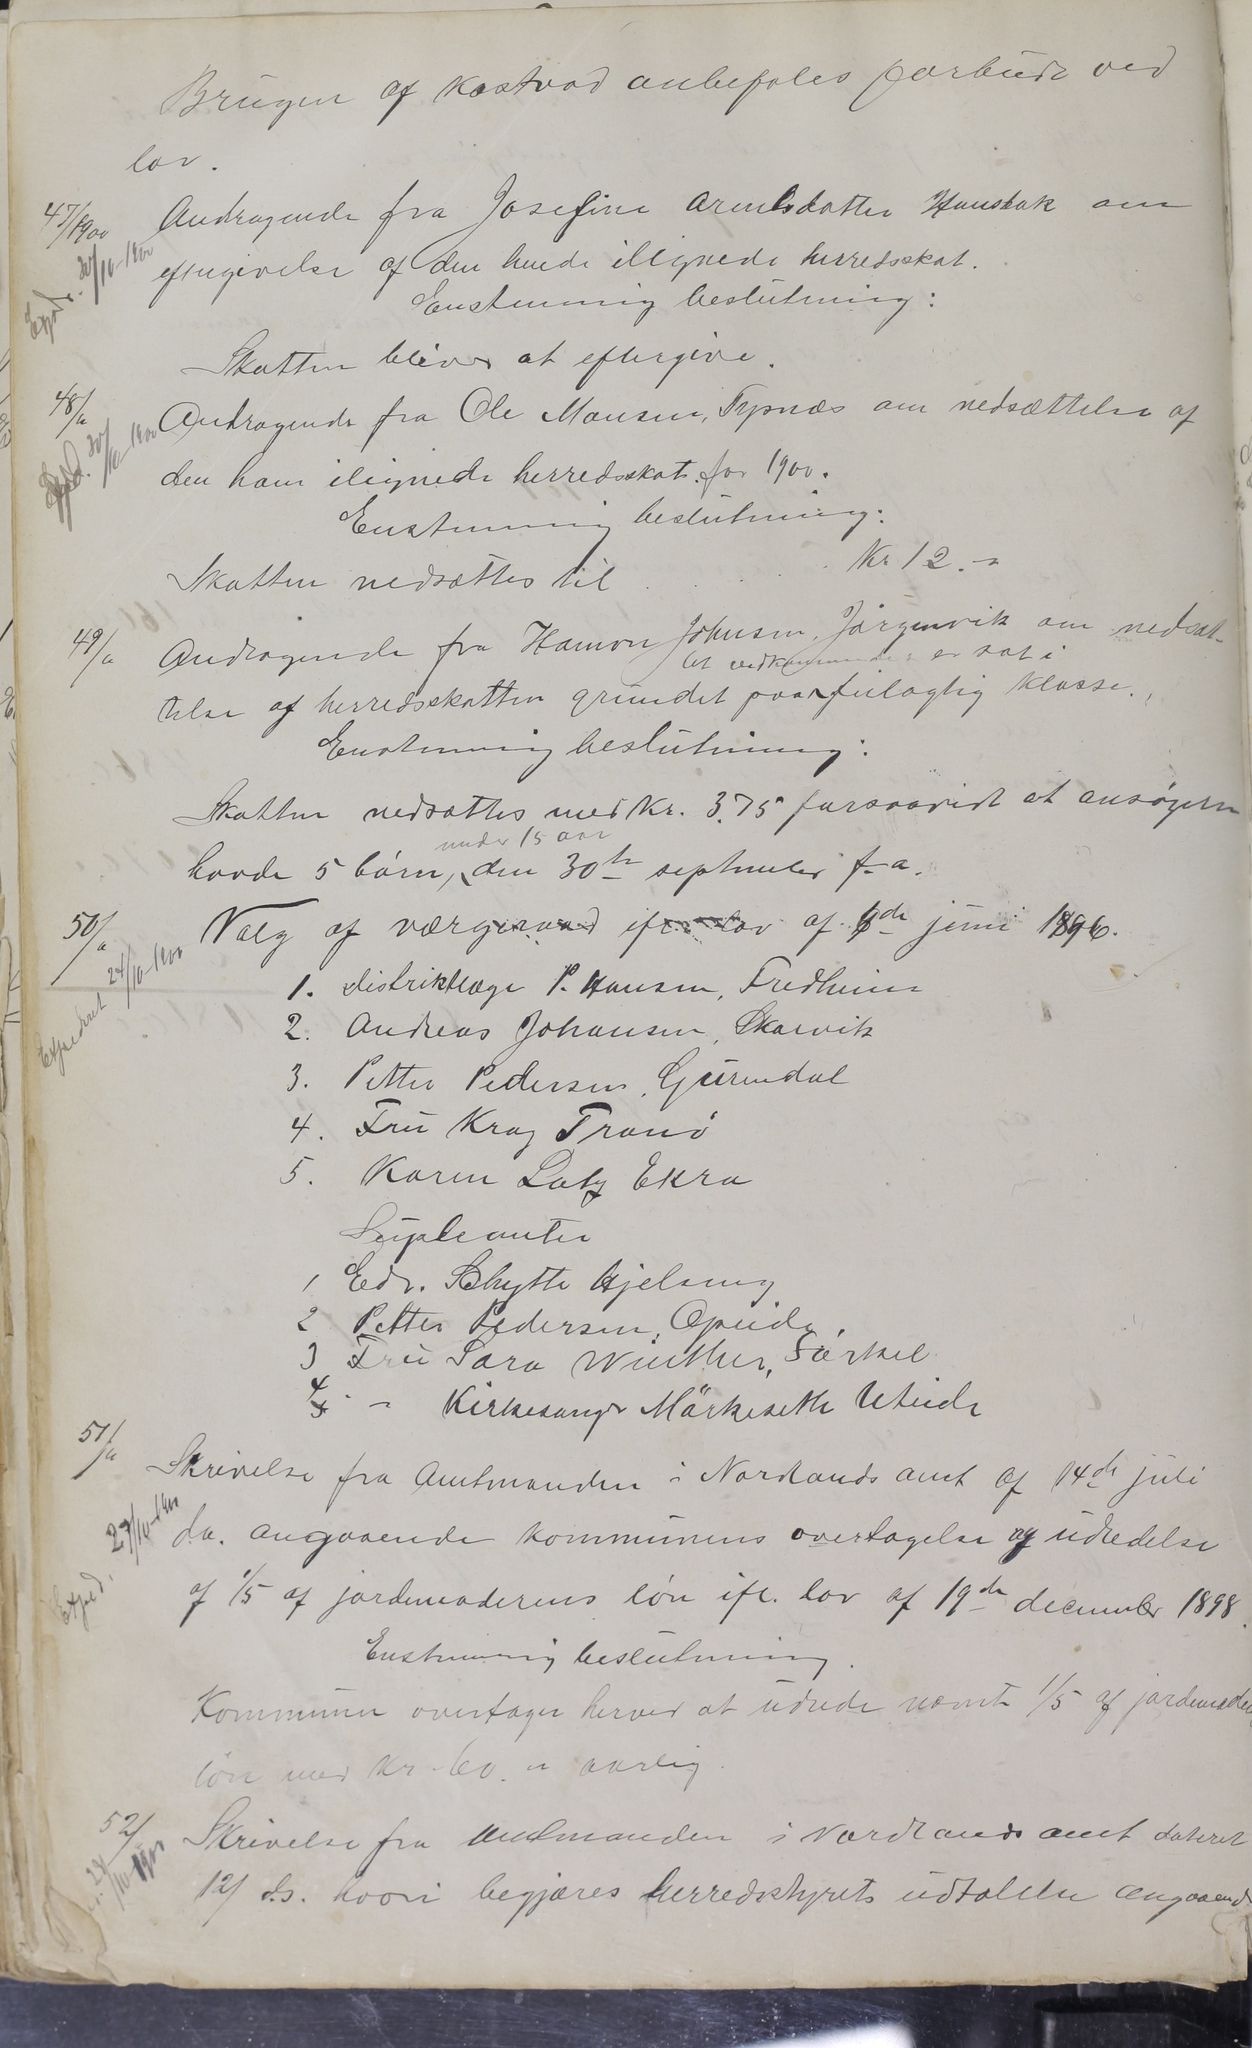 Brugen af kastvad anbefales forbudt ved
lov.
47/1900 Andragende fra Josefine Arentsdatter Hansbak om
Expd. 30/10-1900 eftergivelse af den hende ilignede herredsskat.
Enstemmig beslutning:
Skatten bliver at eftergive.
48/a Andragende fra Ole Monsen, Fypnæs om nedsættelse af
Expd. 30/10-1900 den ham ilignede herredsskat for 1900.
Enstemmig beslutning:
Skatten nedsættes til Kr 12.-
49/a Andragende fra Hamon Johnsen, Jørgenvik om nedsæt-
at vedkommende er sat i
telse af herredsskatten grundet paa feilagtig klasse.
Enstemmig beslutning:
Skatten nedsættes med Kr. 3.75 forsaavidt at ansøgeren
under 15 aar
havde 5 børn, den 30te september f. a.
50/a Valg af værgeraad ifr. lov af 6de juni 1896.
Expederet 24/10-1900
1. Distriktlæge P. Hansen, Fredheim
2. Andreas Johansen, Skarvik
3. Petter Pedersen, Gurendal
4. Fru Krag Tranø
5. Karen Ekra
Supleanter
1 Edv. Schytte Hjelseng
2 Petter Pedersen, Opeide.
3 Fru Sara Winther,
4 - Kirkesanger Mørkeseth Uteide
51/a Skrivelse fra Amtmanden i Nordlands amt af 14de juli
Exped. 27/10-1900 d.a. angaaende kommunens overtagelse af udredelse
af 1/5 af jordemoderens løn ifl. lov af 19de december 1898.
Enstemmig beslutning.
Kommunen overtager herved at udrede nævnte 1/5 af jordemoderens
løn med Kr. 60.- aarlig.
52/ Skrivelse fra Amtmanden i Nordlands amt dateret
12/ ds. hvori begjæres herredsstyrets udtalelse angaaende